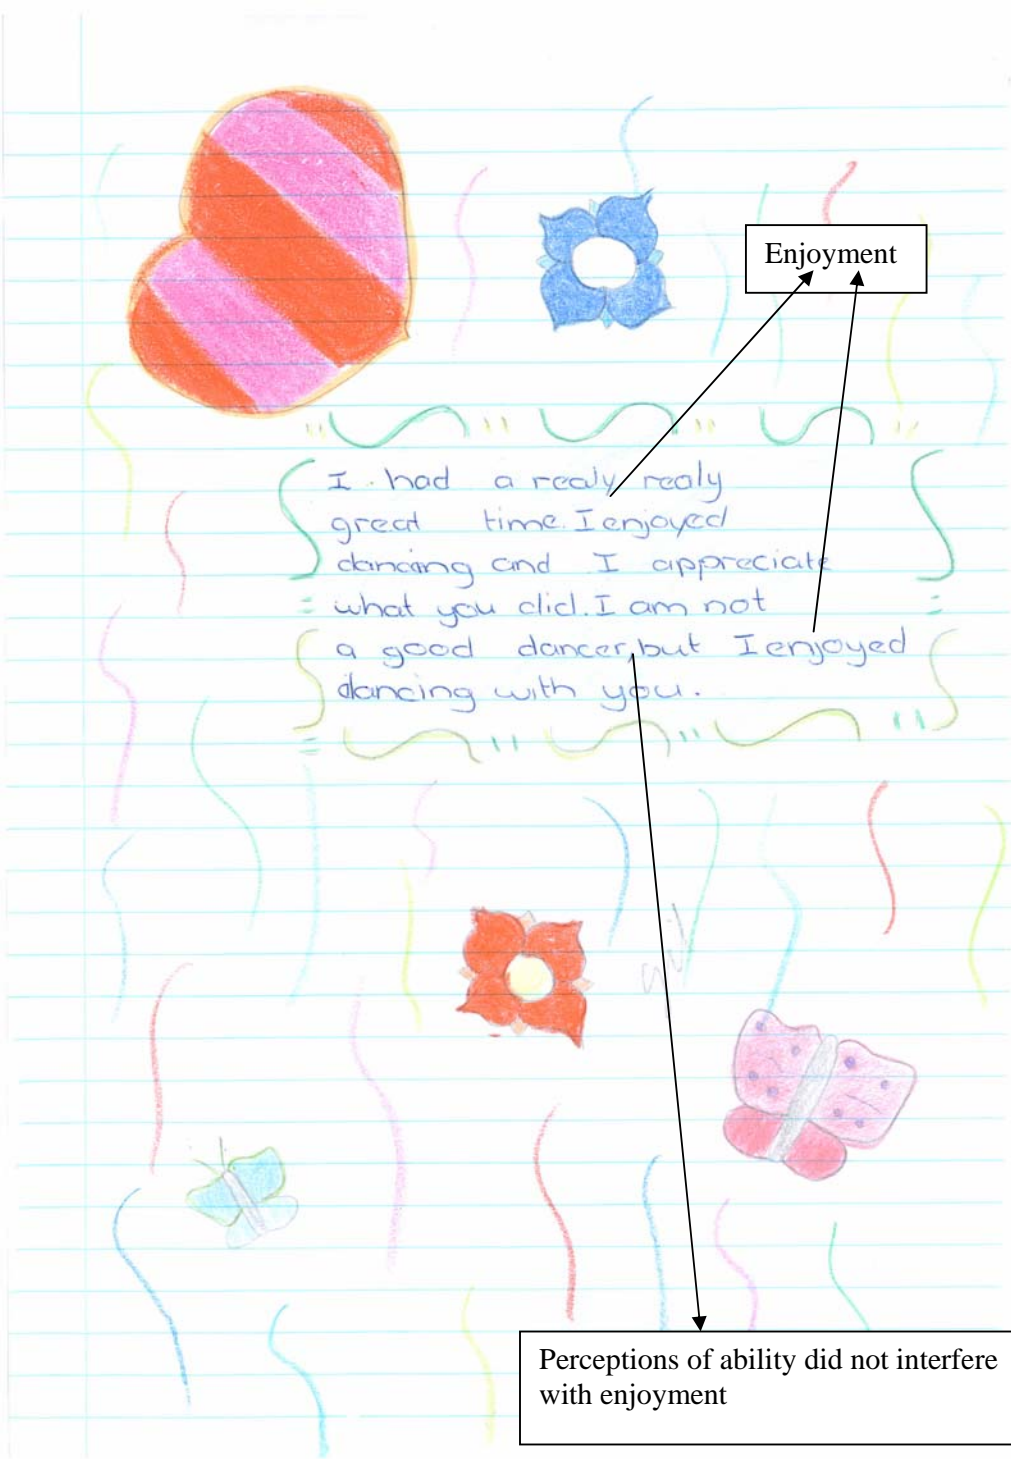 Enjoyment
I had a realy realy
great time. I enjoyed
dancing and I appreciate
what you did. I am not
a good dancer, but I enjoyed
dancing with you.
Perceptions of ability did not interfere
with enjoyment